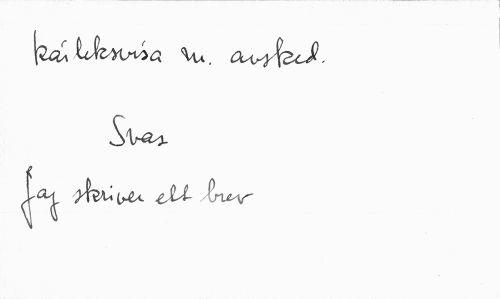 kärleksvisa m. avsked.
Svar
Jag skriver ett brev